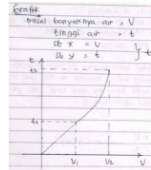 Grafik
Misal banyaknya air = V
tinggi air = t
sb x = V
sb y = t
} t
t
t₂
t₁
V₁ V₂ V